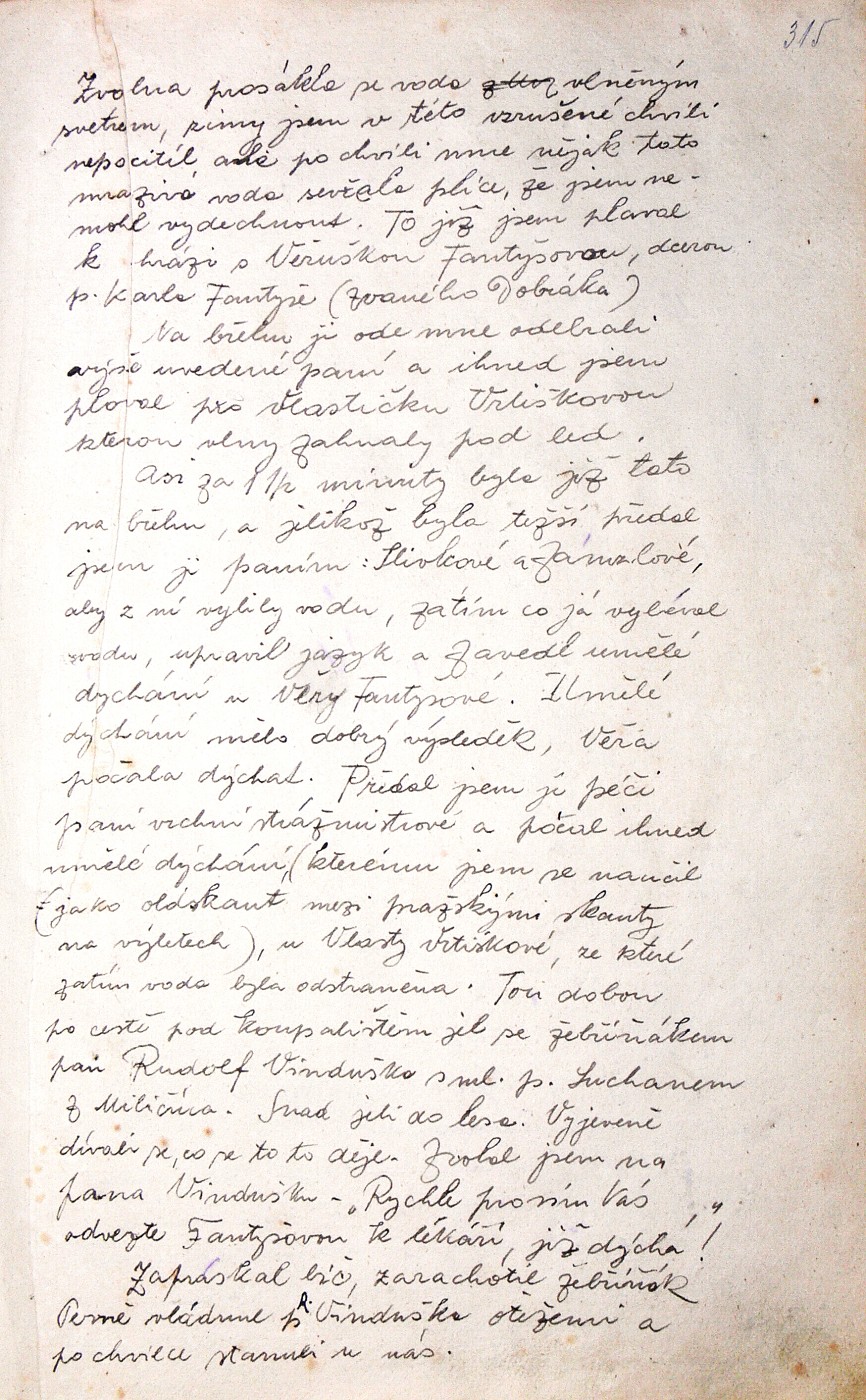 315
Zvolna prosákla se voda vlněným
svetrem, zimy jsem v této vzrušené chvíli
nepocitil ale po chvíli mne nějak tato
mrazivá voda sevřela plíce, že jsem ne-
mohl vydechnout. To již jsem plaval
k hrázi s Věruškou Fantyšovou, dcerou
p. Karla Fantyše (zvaného Dobráka)
Na břehu ji ode mne odebrali
výše uvedené paní a ihned jsem
ploval pro Vlastičku Vrtiškovou
kterou vlny zahnaly pod led.
Asi za 1 1/2 minuty byla již tato
na břehu, a jelikož byla težší předal
jsem ji paním: Slivkové a Zámzlové,
aby z ní vylily vodu, zatím co já vyléval
vodu, upravil jazyk a zavedl umělé
dychání u Věry Fantyšové. Umělé
dychání mělo dobrý výsleděk, Věra
počala dýchat. Předal jsem ji péči
paní vrchní strážmistrové a počal ihned
umělé dýchání, (kterému jsem se naučil
(jako oldskaut mezi pražskými skauty
na výletech), u Vlasty Vrtiškové, ze které
zatím voda byla odstraněna. Tou dobou
po cestě pod koupalištěm jel se žebřiňákem
pan Rudolf Vinduška s ml. p. Suchanem
z Miličína. Snad jeli do lesa. Vyjeveně
dívali se, co se to to děje. Zvolal jsem na
pana Vindušku - „Rychle prosím Vás
odvezte Fantyšovou k lékáři, již dýchá!"
Zapráskal bič, zarachotil žebřiňák
Pevně vládnul p. R. Vinduška otěžemi a
po chvilce stanuli u nás.